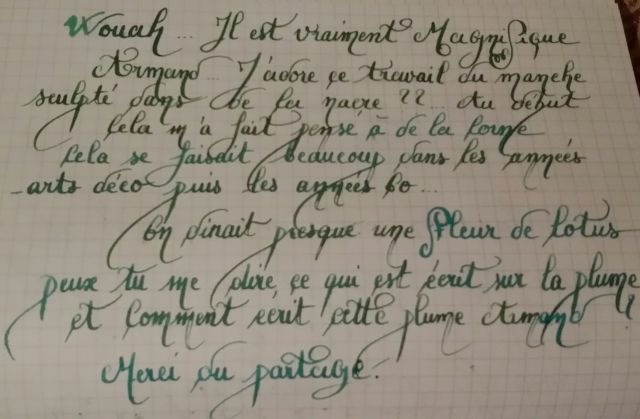 Wouah... Il est vraiment Magnifique
Armand... J'adore ce travail du manche
sculpté dans de la nacre ??... Au début
cela m'a fait pensé à de la corne
Cela se faisait beaucoup dans les années
arts déco puis les années 60...
On dirait presque une fleur de lotus
peux tu me dire ce qui est écrit sur la plume
et comment écrit cette plume Armand ?
Merci du partage.